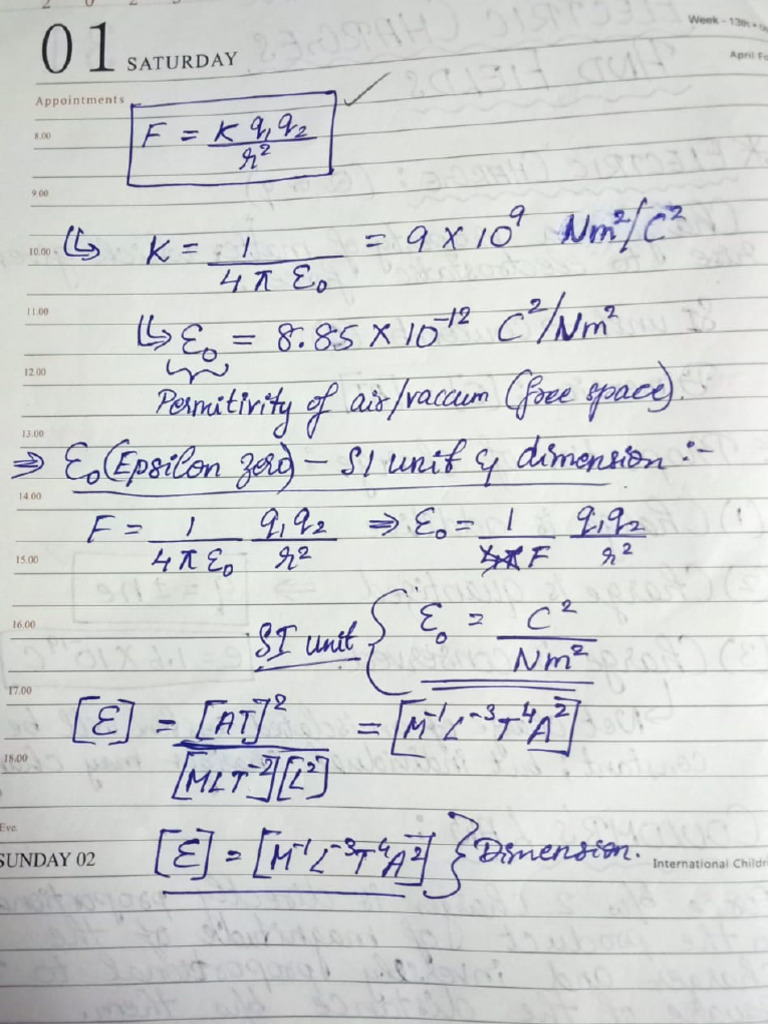 2 0 2 3
Week - 13th
01 SATURDAY
April Fo
Appointments
8.00
F = K q₁q₂ / r²
9.00
10.00
↳ K = 1 / 4π ε₀ = 9 × 10⁹ Nm²/C²
11.00
↳ ε₀ = 8.85 × 10⁻¹² C²/Nm²
12.00
Permitivity of air/vaccum (free space).
13.00
⇒ ε₀ (Epsilon zero) – SI unit & dimension :-
14.00
F = 1 / 4π ε₀ q₁q₂ / r² ⇒ ε₀ = 1 / 4π F q₁q₂ / r²
15.00
16.00
SI unit { ε₀ = C² / Nm²
17.00
[ε] = [AT]² / [MLT⁻²][L²] = [M⁻¹L⁻³T⁴A²]
18.00
Eve.
SUNDAY 02
[ε] = [M⁻¹L⁻³T⁴A²] } Dimension.
International Childr